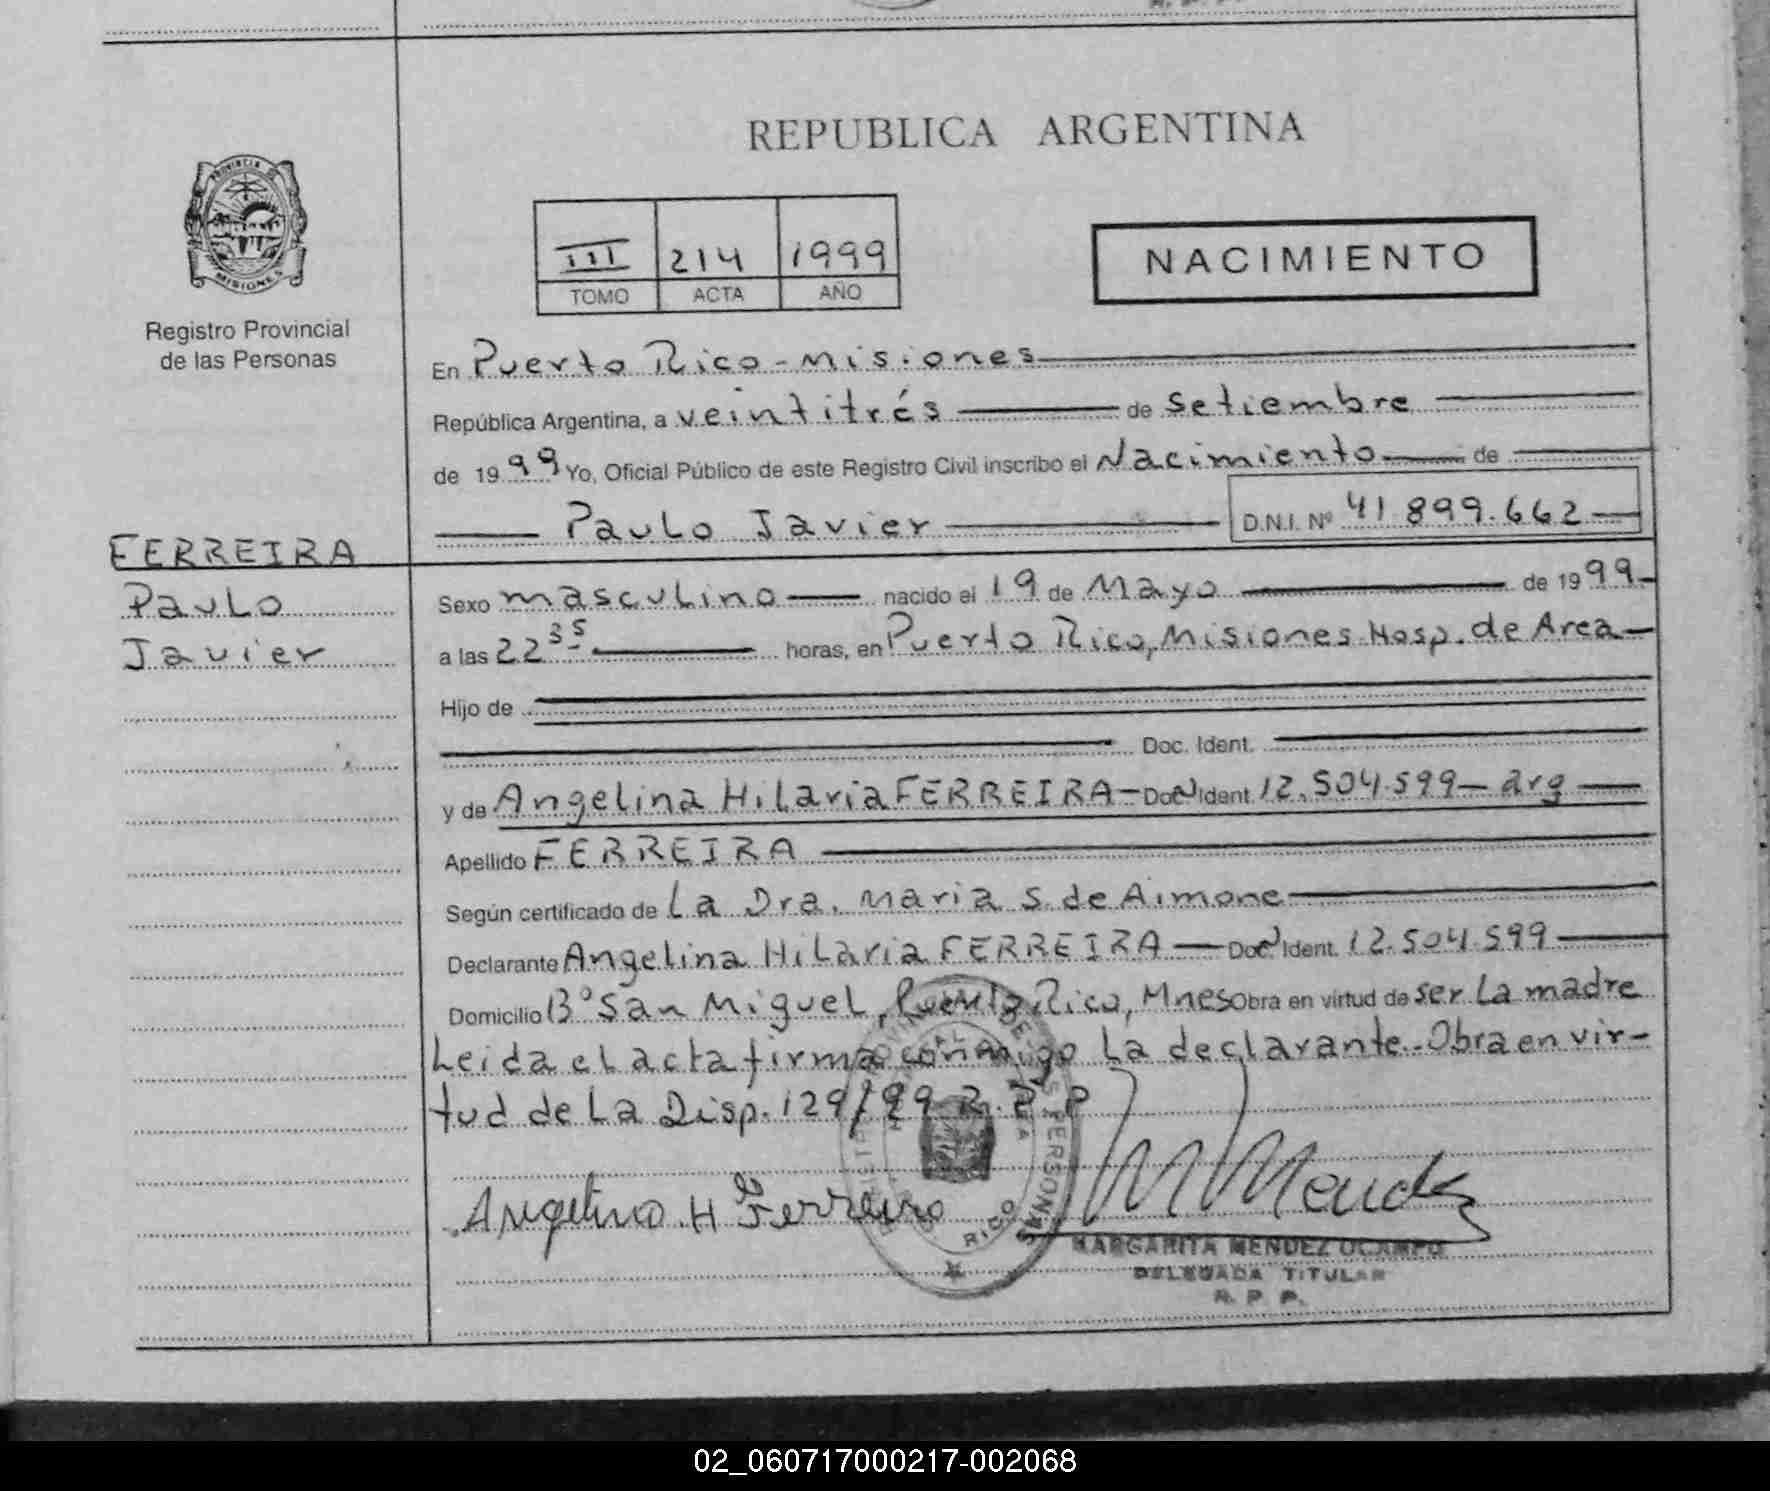 REPUBLICA ARGENTINA
PROVINCIA DE
MISIONES
Registro Provincial
de las Personas
III 214 1999
TOMO ACTA AÑO
NACIMIENTO
En Puerto Rico - Misiones
República Argentina, a veintitrés de Setiembre
de 1999 Yo, Oficial Público de este Registro Civil inscribo el Nacimiento de
Paulo Javier D.N.I. Nº 41.899.662
FERREIRA
Paulo
Javier
Sexo masculino nacido el 19 de Mayo de 1999
a las 22 35 horas, en Puerto Rico, Misiones Hosp. de Area
Hijo de
Doc. Ident.
y de Angelina Hilaria FERREIRA Doc. Ident. 12.504.599 - arg
Apellido FERREIRA
Según certificado de La Dra. Maria S. de Aimone
Declarante Angelina Hilaria FERREIRA Doc. Ident. 12.504.599
Domicilio Bº San Miguel, Puerto Rico, Mnes Obra en virtud de ser La madre
Leida el acta firma conmigo La declarante. Obra en vir-
tud de La Disp. 129/99 R.P.P
Angelina H Ferreira
M Mendez
PERSONAS
RICO
MARGARITA MENDEZ OCAMPO
DELEGADA TITULAR
R. P. P.
02_060717000217-002068